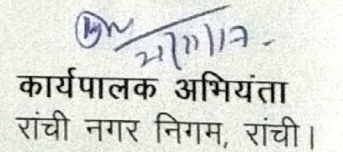 21/11/17
कार्यपालक अभियंता
रांची नगर निगम, रांची।